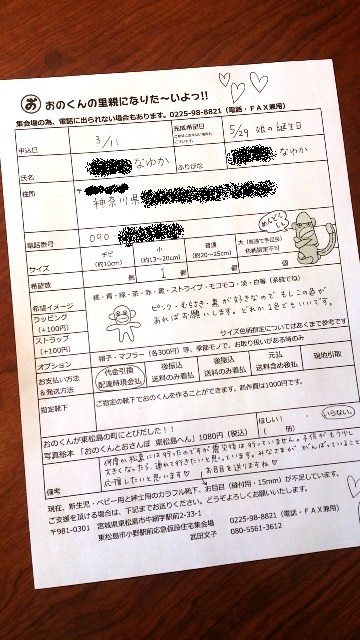 お おのくんの里親になりた～いよっ!!
集会場の為、電話に出られない場合もあります。0225-98-8821（電話・FAX兼用）
申込日 3/11 完成希望日 5/29 娘の誕生日
氏名 なゆか ふりがな なゆか
住所 〒
神奈川県
電話番号 090
めんどくしぇ
サイズ チビ（約10cm） 小（約13～20cm） 普通（約20～25cm） 大
希望数 個 1 個 個 個
希望イメージ 桃・青・緑・茶・赤・黒・ストライプ・モコモコ・淡・白等（系統でね）
ラッピング（+100円）
ストラップ（+100円）
ピンク・むらさき・黒が好きなので、もしこの色が
あればお願いします。どれか1色でもいいです。
サイズ色柄指定についてはあくまで参考です
オプション 帽子・マフラー（各300円）等、季節モノで、お取り扱いがある時のみ
お支払い方法＆発送方法 代金引換 配達時現金払 後振込 送料のみ着払 後振込 送料込み 元払 送料含め後払 現地引取
指定靴下 ご指定の靴下でおのくんを作ることができます。試作費は1000円です。
おのくんが東松島の町にとびだした!!
写真絵本「おのくんとおさんぽ 東松島へん」1080円（税込） ほしい（ 冊） ・いらない
備考 何度か松島には行ったのですが震災後は行っていません。子供がもう少し
大きくなったら、連れて行きたいと思っています。みなさまががんばっていること
応援したいと思います♡ お目目を送りますね♡
現在、新生児・ベビー用と紳士用のカラフル靴下、お目目（縫付用・15mm）が不足しています。
ご支援を頂ける場合は、下記までお送りください。どうぞよろしくお願いいたします。
〒981-0301 宮城県東松島市牛網字駅前2-33-1 0225-98-8821（電話・FAX兼用）
東松島市小野駅前応急仮設住宅集会場 武田文子 080-5561-3612